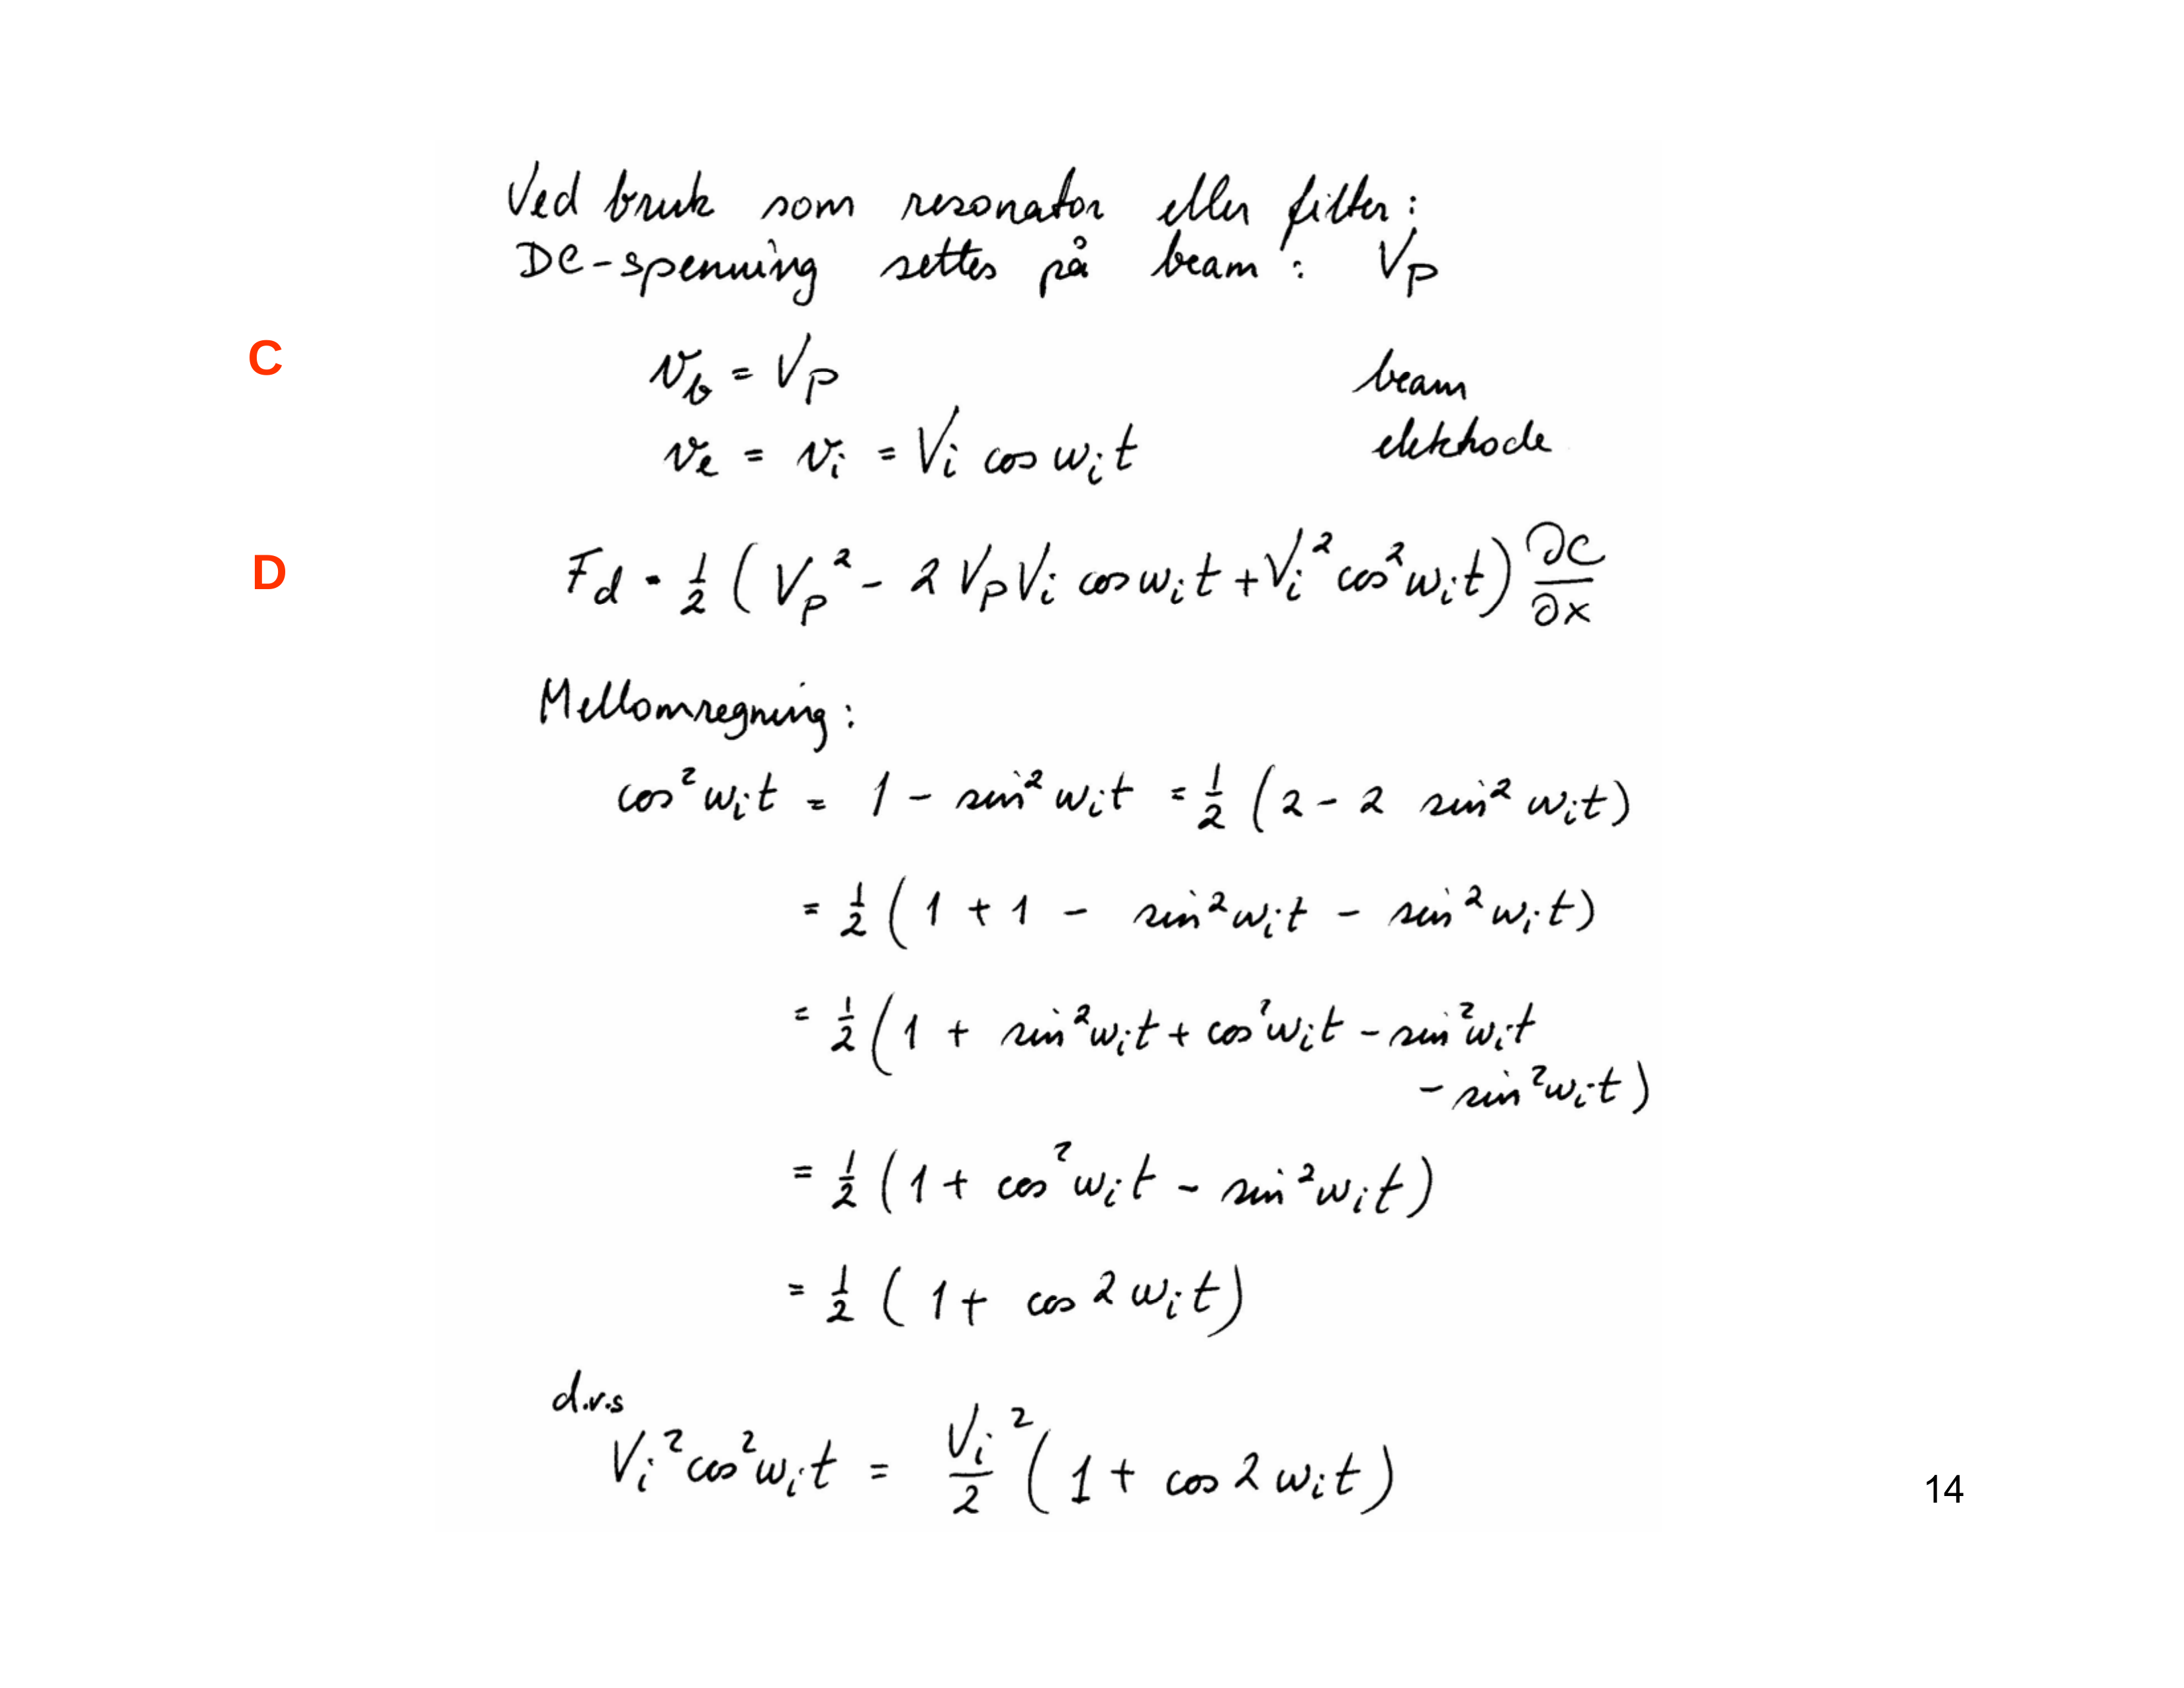 Ved bruk som resonator eller filter:
DC-spenning settes på beam: V_P
C
v_b = V_P beam
v_e = v_i = V_i cos ω_i t elektrode
D
F_d = 1/2 ( V_P² - 2 V_P V_i cos ω_i t + V_i² cos² ω_i t ) ∂C/∂x
Mellomregning:
cos² ω_i t = 1 - sin² ω_i t = 1/2 ( 2 - 2 sin² ω_i t )
= 1/2 ( 1 + 1 - sin² ω_i t - sin² ω_i t )
= 1/2 ( 1 + sin² ω_i t + cos² ω_i t - sin² ω_i t
- sin² ω_i t )
= 1/2 ( 1 + cos² ω_i t - sin² ω_i t )
= 1/2 ( 1 + cos 2 ω_i t )
d.v.s
V_i² cos² ω_i t = V_i²/2 ( 1 + cos 2 ω_i t )
14